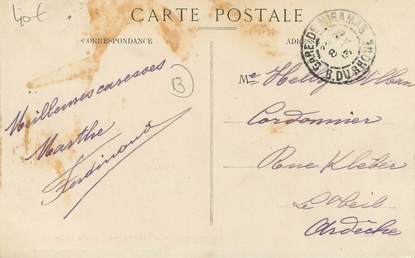 40€
CARTE POSTALE
CORRESPONDANCE
ADRE
GARE DE MIRAMAS
B. DU RHONE
B
Meilleures caresses
Marthe
Ferdinand
Mr Helly
Cordonnier
Rue Kléber
Le Teil
Ardèche